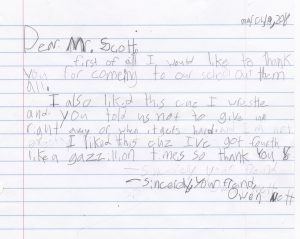 march 9, 201
Dear Mr. Scott,
first of all I would like to thank
you for coming to our school out them
all.
I also likid this cuz I wrestle
and you told us not to give up
right away or when it gets hard
I liked this cuz I've got fourth
like a gazzillion times so thank you
-Sincerely, your friend,
Owen